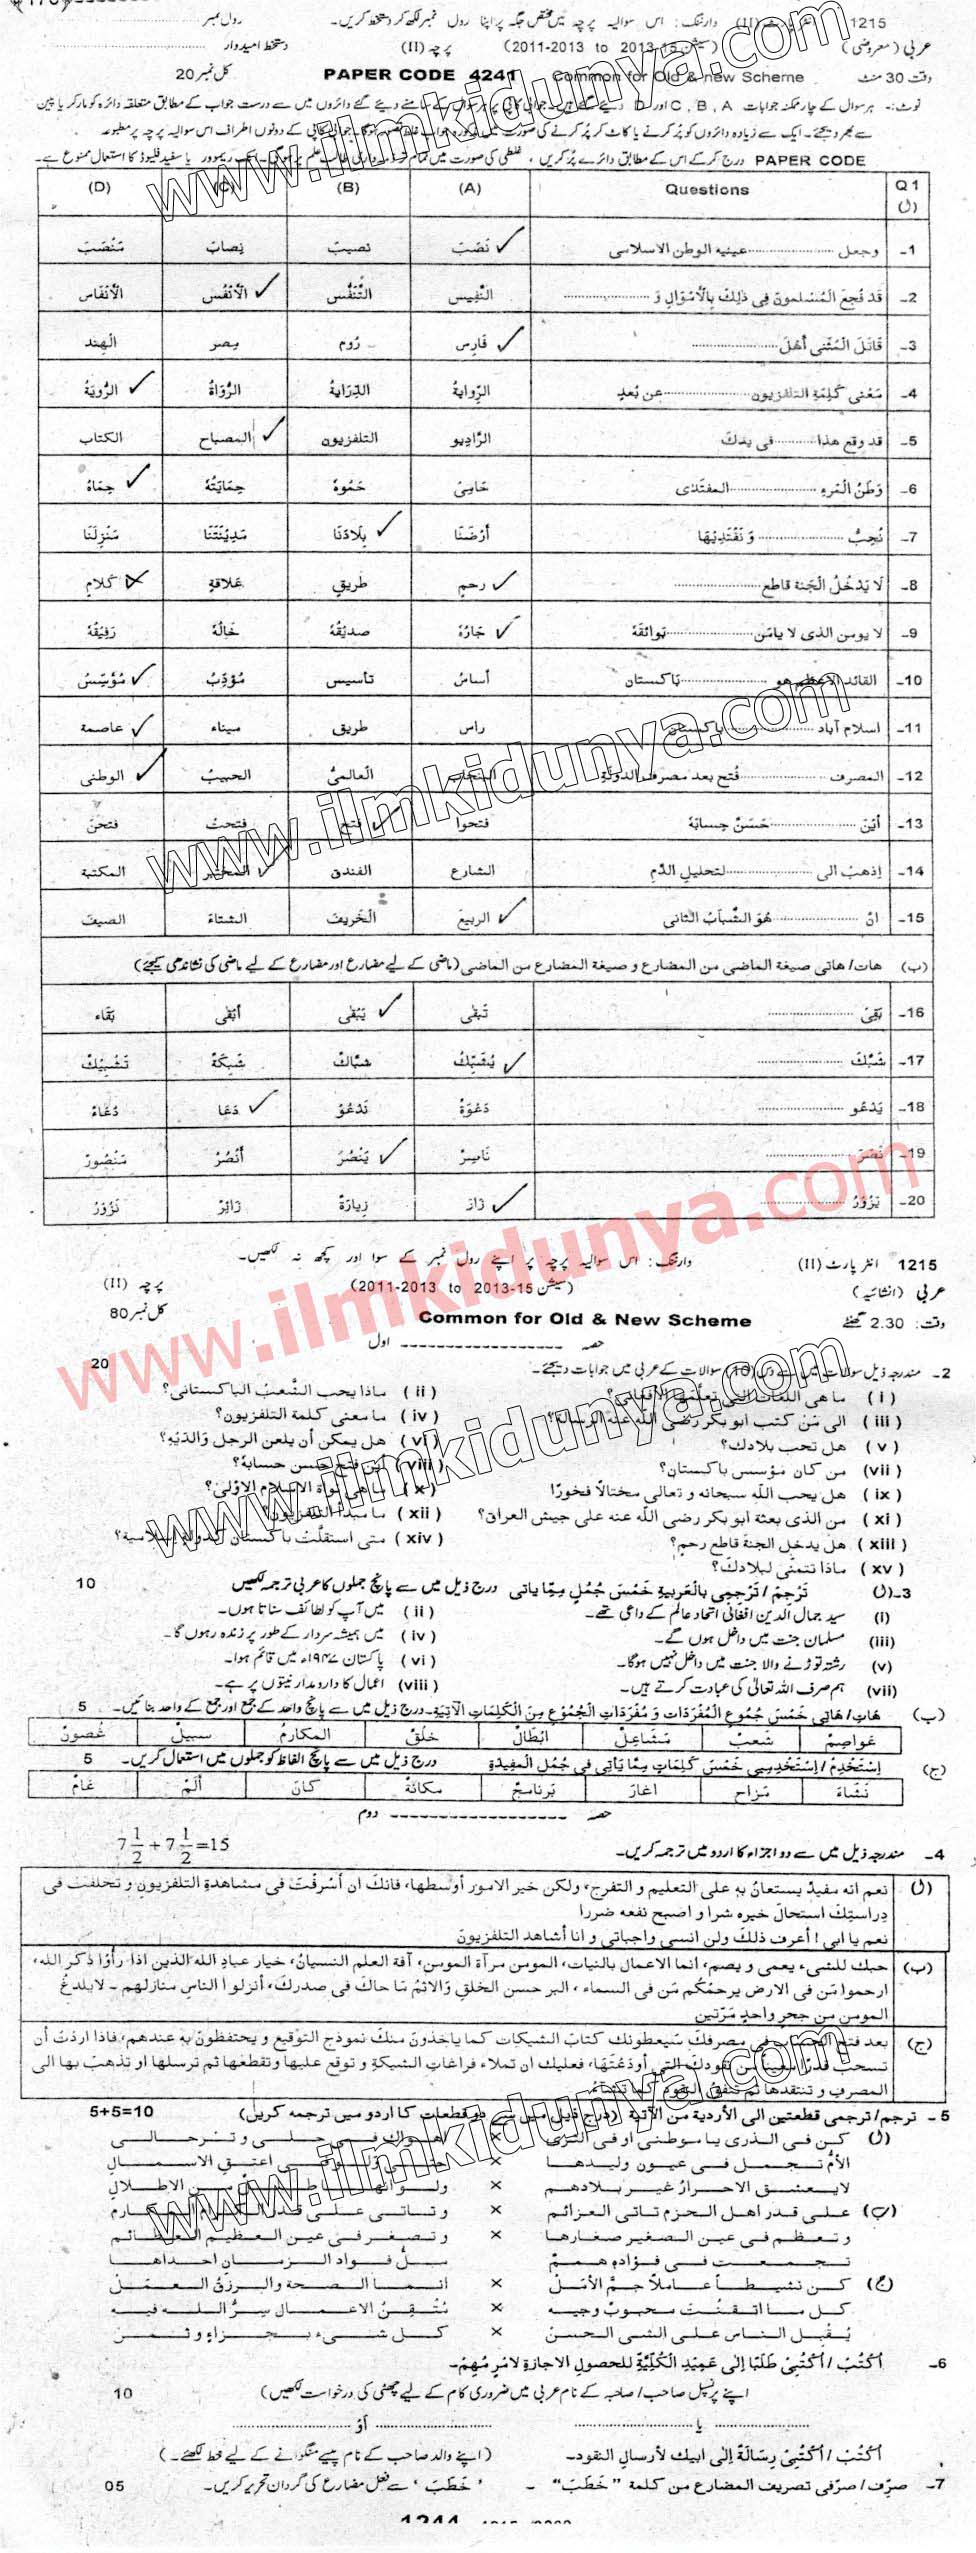 1215 انٹر پارٹ (II) وارننگ: اس سوالیہ پرچہ میں مختص جگہ پر اپنا رول نمبر لکھ کر دستخط کریں۔ رول نمبر
عربی (معروضی) (سیشن 15-2013 to 2011-2013) پرچہ (II) دستخط امیدوار
وقت 30 منٹ Common for Old & new Scheme PAPER CODE 4241 کل نمبر 20
نوٹ:- ہر سوال کے چار ممکنہ جوابات A , B , C اور D دیئے گئے ہیں۔ جوابی کاپی پر ہر سوال کے سامنے دیئے گئے دائروں میں سے درست جواب کے مطابق متعلقہ دائرہ کو مارکر یا پین
سے بھر دیجئے۔ ایک سے زیادہ دائروں کو پُر کرنے یا کاٹ کر پُر کرنے کی صورت میں مذکورہ جواب غلط تصور ہوگا۔ جوابی کاپی کے دونوں اطراف اس سوالیہ پرچہ پر مطبوعہ
PAPER CODE درج کر کے اس کے مطابق دائرے پُر کریں، غلطی کی صورت میں تمام تر ذمہ داری طالب علم پر ہوگی۔ انک ریموور یا سفید فلیوڈ کا استعمال ممنوع ہے۔
Q 1 (ل) Questions (A) (B) (C) (D)
1۔ وجعل .......... عينيه الوطن الاسلامى نَصَبَ نصيبَ نِصابَ مَنْصَبَ
2۔ قَد فُجِعَ الْمُسْلِمونَ فِى ذٰلِكَ بِالْأَمْوَالِ وَ .......... النَّفِيسِ التَّنَفُّسِ الْأَنْفُسِ الْأَنْفَاسِ
3۔ قَاتَلَ الْمُثَنّٰى أَهْلَ .......... فَارِس رُوم مِصر الْهِند
4۔ مَعْنٰى كَلِمَةِ التلفزيون .......... عن بُعدٍ الرِّوايةُ الدِّرَايةُ الرُّوَاةُ الرُّويَةُ
5۔ قد وقع هذا .......... فى يدك الرَّاديو التلفزيون المصباح الكتاب
6۔ وَطَنُ الْمَرءِ .......... المفتدٰى حَامِىْ حَمُوهُ حِمَايَتُهُ حِمَاهُ
7۔ نُحِبُّ .......... وَنَفْتَدِيْهَا أَرْضَنَا بِلَادَنَا مَدِيْنَتَنَا مَنْزِلَنَا
8۔ لَا يَدْخُلُ الْجَنةَ قاطع .......... رحمٍ طَريقٍ عَلاقةٍ كَلامٍ
9۔ لا يومن الذى لا يامن .......... بوائقهُ جَارُهُ صديقُهُ خَالُهُ رَفِيقُهُ
10۔ القائد الاعظم هو .......... باكستان أساسُ تأسيس مُؤدِّبُ مُؤسِّسُ
11۔ اسلام آباد .......... باكستان راس طريق ميناء عاصمة
12۔ المصرف .......... فُتح بعد مصرف الدولةِ الْعالمىُّ الحبيبُ الوطنى
13۔ أيْنَ .......... حَسَنٌ حِسابَهُ فتحوا فتح فتحتْ فتحنَ
14۔ اِذهبْ الى .......... لتحليلِ الدَّمِ الشارع الفندق المختبر المكتبة
15۔ انّ .......... هُوَ الشَّبَابُ الثانى الربيعَ الخَريفَ الشتاءَ الصيفَ
(ب) هات/هاتى صيغة الماضى من المضارع و صيغة المضارع من الماضى (ماضی کے لیے مضارع اور مضارع کے لیے ماضی کی نشاندہی کیجئے)
16۔ بَقِىَ .......... تَبقٰى يَبْقٰى أبْقٰى بَقَاء
17۔ شَبَّكَ .......... يُشَبِّكُ شبَّاك شَبكَة تَشْبِيْكٌ
18۔ يَدْعُو .......... دَعوَةٌ نَدْعُوْ دَعَا دُعَاءٌ
19۔ نَصَرَ .......... نَاصِرٌ يَنْصُرُ أنْصُرُ مَنْصُورٌ
20۔ يَزُوْرُ .......... زَارَ زِيارَةٌ زَائِرٌ نَزُوْرُ
1215 انٹر پارٹ (II) وارننگ: اس سوالیہ پرچہ پر اپنے رول نمبر کے سوا اور کچھ نہ لکھیں۔
عربی (انشائیہ) (سیشن 15-2013 to 2011-2013) پرچہ (II)
وقت: 2.30 گھنٹے Common for Old & New Scheme کل نمبر 80
حصہ اول
2۔ مندرجہ ذیل سوالات میں سے دس (10) سوالات کے عربی میں جوابات دیجئے۔ 20
(i) ما هى اللغات التى تعلّمها الافغانى؟ (ii) ماذا يحب الشَّعبُ الباكستانى؟
(iii) الى مَن كتب ابو بكر رضى الله عنه الرسالة؟ (iv) ما معنى كلمة التلفزيون؟
(v) هل تحب بلادك؟ (vi) هل يمكن أن يلعن الرجل والدَيْهِ؟
(vii) من كان مؤسس باكستان؟ (viii) اين فتح حسن حسابهُ؟
(ix) هل يحب الله سبحانه و تعالى مختالًا فخورًا (x) ما هى نواة الاسلام الاوْلىٰ؟
(xi) من الذى بعثهُ ابو بكر رضى الله عنه على جيش العراق؟ (xii) ما مبدأ التلفزيون؟
(xiii) هل يدخل الجنة قاطع رحم؟ (xiv) متى استقلّت باكستان كدولةٍ اسلامية؟
(xv) ماذا تتمنّى لبلادك؟
3۔(ل) تَرْجِمْ/تَرْجِمِى بِالْعَرَبِيةِ خَمْسَ جُمَلٍ مِمَّا ياتى درج ذیل میں سے پانچ جملوں کا عربی ترجمہ لکھیں 10
(i) سید جمال الدین افغانی اتحاد عالم کے داعی تھے۔ (ii) میں آپ کو لطائف سناتا ہوں۔
(iii) مسلمان جنت میں داخل ہوں گے۔ (iv) میں ہمیشہ سردار کے طور پر زندہ رہوں گا۔
(v) رشتہ توڑنے والا جنت میں داخل نہیں ہوگا۔ (vi) پاکستان ۱۹۴۷ء میں قائم ہوا۔
(vii) ہم صرف اللہ تعالیٰ کی عبادت کرتے ہیں۔ (viii) اعمال کا دارومدار نیتوں پر ہے۔
(ب) هَاتِ/هَاتِى خَمْسَ جُمُوعِ الْمُفْرَدَاتِ وَ مُفْرَدَاتِ الْجُمُوْعِ مِنَ الْكَلِمَاتِ الْآتِيَةِ۔ درج ذیل میں سے پانچ واحد کے جمع اور جمع کے واحد بنائیں۔ 5
عَوَاصِمُ شَعبٌ مَشَاعِلُ ابْطَالٌ خُلُقٌ المكارمُ سبيلٌ غُصونٌ
(ج) اِسْتَخْدِمْ/اِسْتَخْدِمِى خَمْسَ كَلِمَاتٍ مِمَّا يَأتِى فِى جُمَلِ الْمُفِيدَةِ درج ذیل میں سے پانچ الفاظ کو جملوں میں استعمال کریں۔ 5
نَشْأَةَ مَزاح اغارَ بَرنامجٌ مكانَةٌ كانَ ألَمْ عَامٌ
حصہ دوم
4۔ مندرجہ ذیل میں سے دو اجزاء کا اردو میں ترجمہ کریں۔ 7 1/2 + 7 1/2 = 15
(ل) نعم انه مفيدٌ يستعانُ به على التعليم و التفرج، ولكن خير الامور أوسطها، فانك ان أسرفتَ فى مشاهدةِ التلفزيون و تخلفت فى
دِراستِك استحالَ خيره شرا و اصبح نفعه ضررا
نعم يا ابى! أعرف ذلك ولن انسى واجباتى و انا أشاهد التلفزيون
(ب) حبك للشىء يعمى و يصم، انما الاعمال بالنيات، المومن مرآة المومن، آفة العلم النسيانُ، خيار عبادِ الله الذين اذا رأوا ذُكر الله،
ارحموا مَن فى الارض يرحمْكُم مَن فى السماء، البر حسن الخلقِ والاثمُ مَا حاك فى صدرك، أنزلوا الناس منازلهم - لايلدغُ
المومن من جحرٍ واحدٍ مَرّتين
(ج) بعد فتح الحساب فى مصرفِك سَيعطونك كتابَ الشيكات كما ياخذون منك نموذج التوقيع و يحتفظونَ به عندهم، فاذا اردتَ أن
تسحب قدرا معينا من نقودك التى أودَعْتَهَا، فعليك ان تملاء فراغاتِ الشيكة و توقع عليها وتقطعها ثم ترسلها او تذهبُ بها الى
المصرفِ و تنتقدها ثم تنفقُ النقود كما تشاءُ
5۔ ترجم/ترجمى قطعتين الى الأردية من الآتية (درج ذیل میں سے دو قطعات کا اردو میں ترجمہ کریں) 5+5=10
(ل) كن فى الذرى يا موطنى او فى الثرى × اهواك فى حلى و ترحالى
الأمُّ تجمل فى عيون وليدها ×
لايعشق الاحرارُ غير بلادهم ×
(ب) على قدر اهل الحزم تاتى العزائم × و تاتى على قدر الكرام المكارم
و تعظم فى عين الصغير صغارها × و تصغر فى عين العظيم العظائم
تجمعت فى فؤاده همم × مِلُ فواد الزمان احداها
(ج) كن نشيطًا عاملًا جمّ الأمَل × انما الصحة والرزق العمل
كل ما اتقنت محبوبٌ وجيه × مُتْقَنُ الاعمال سِرُّ الله فيه
يُقْبِل الناس على الشى الحسن × كل شىء بجزاءٍ و ثمن
6۔ اُكْتُبْ/اُكْتُبِىْ طَلَبًا إلٰى عَمِيْدِ الْكُلِّيَّةِ للحصولِ الاجازةِ لامْرٍ مُهِمٍّ۔
اپنے پرنسپل صاحب/صاحبہ کے نام عربی میں ضروری کام کے لیے چھٹی کی درخواست لکھیں) 10
یا اَوْ
اُكْتُبْ/اُكْتُبِىْ رِسَالَةً إلٰى ابيك لأرسالِ النقود۔ (اپنے والد صاحب کے نام پیسے منگوانے کے لیے خط لکھئے۔)
7۔ صرّف/صرّفى تصريف المضارع من كلمة "خَطَبَ" - 'خَطَبَ' سے فعل مضارع کی گردان تحریر کریں۔ 05
www.ilmkidunya.com
www.ilmkidunya.com
www.ilmkidunya.com
www.ilmkidunya.com
www.ilmkidunya.com